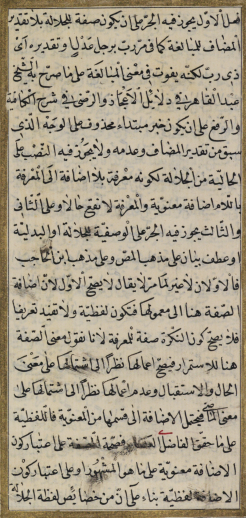 فعلى الأول يجوز فيه الجر على ان يكون صفة للجلالة بلا تقدير
المضاف للمبالغة كما في مررت برجل عدل او بتقديره اى
ذى رب لكنه يفوت في معنى المبالغة على ما صرح به الشيخ
عبد القاهر في دلائل الاعجاز والرضى في شرح الكافية
والرفع على ان يكون خبر مبتداء محذوف على الوجه الذى
سبق من تقدير المضاف وعدمه ولا يجوز فيه النصب على
الحالية من الجلالة لكونه معرفة بلا اضافة الى المعرفة
باللام اضافة معنوية والمعرفة لا تقع حالا وعلى الثانى
والثالث يجوز فيه الجر على الوصفية للجلالة او البدلية
او عطف بيان على مذهب المص وعلى مذهب ابن الحاجب
فالاولان لا غير لما مر لا يقال لا يصح الاول لان اضافة
الصفة هنا الى معمولها فتكون لفظية ولا تفيد تعريفا
فلا يصح كون النكرة صفة للمعرفة لانا نقول معنى الصفة
هنا للاستمرار فيصح اعمالها نظرا الى اشتمالها على معنى
الحال والاستقبال وعدم اعمالها نظرا الى اشتمالها على
معنى الماضى فيحتمل الاضافة الى قسمها من المعنوية واللفظية
على ما حققه الفاضل على اعتبار كون
الاضافة معنوية على ما هو المشهور او على اعتبار كون
الاضافة لفظية بناء على ان من خصائص لفظة الجلالة